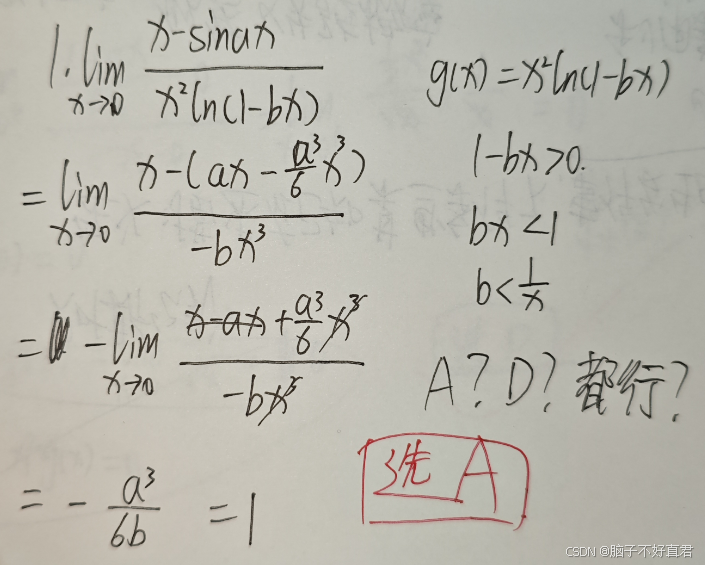 1. lim x→0 (x-sinax)/(x²ln(1-bx))
= lim x→0 (x-(ax-a³/6 x³))/(-bx³)
= -lim x→0 (x-ax+a³/6 x³)/(-bx³)
= - a³/6b = 1
g(x)=x²ln(1-bx)
1-bx>0.
bx<1
b<1/x
A? D? 都行?
选 A
CSDN @脑子不好直君